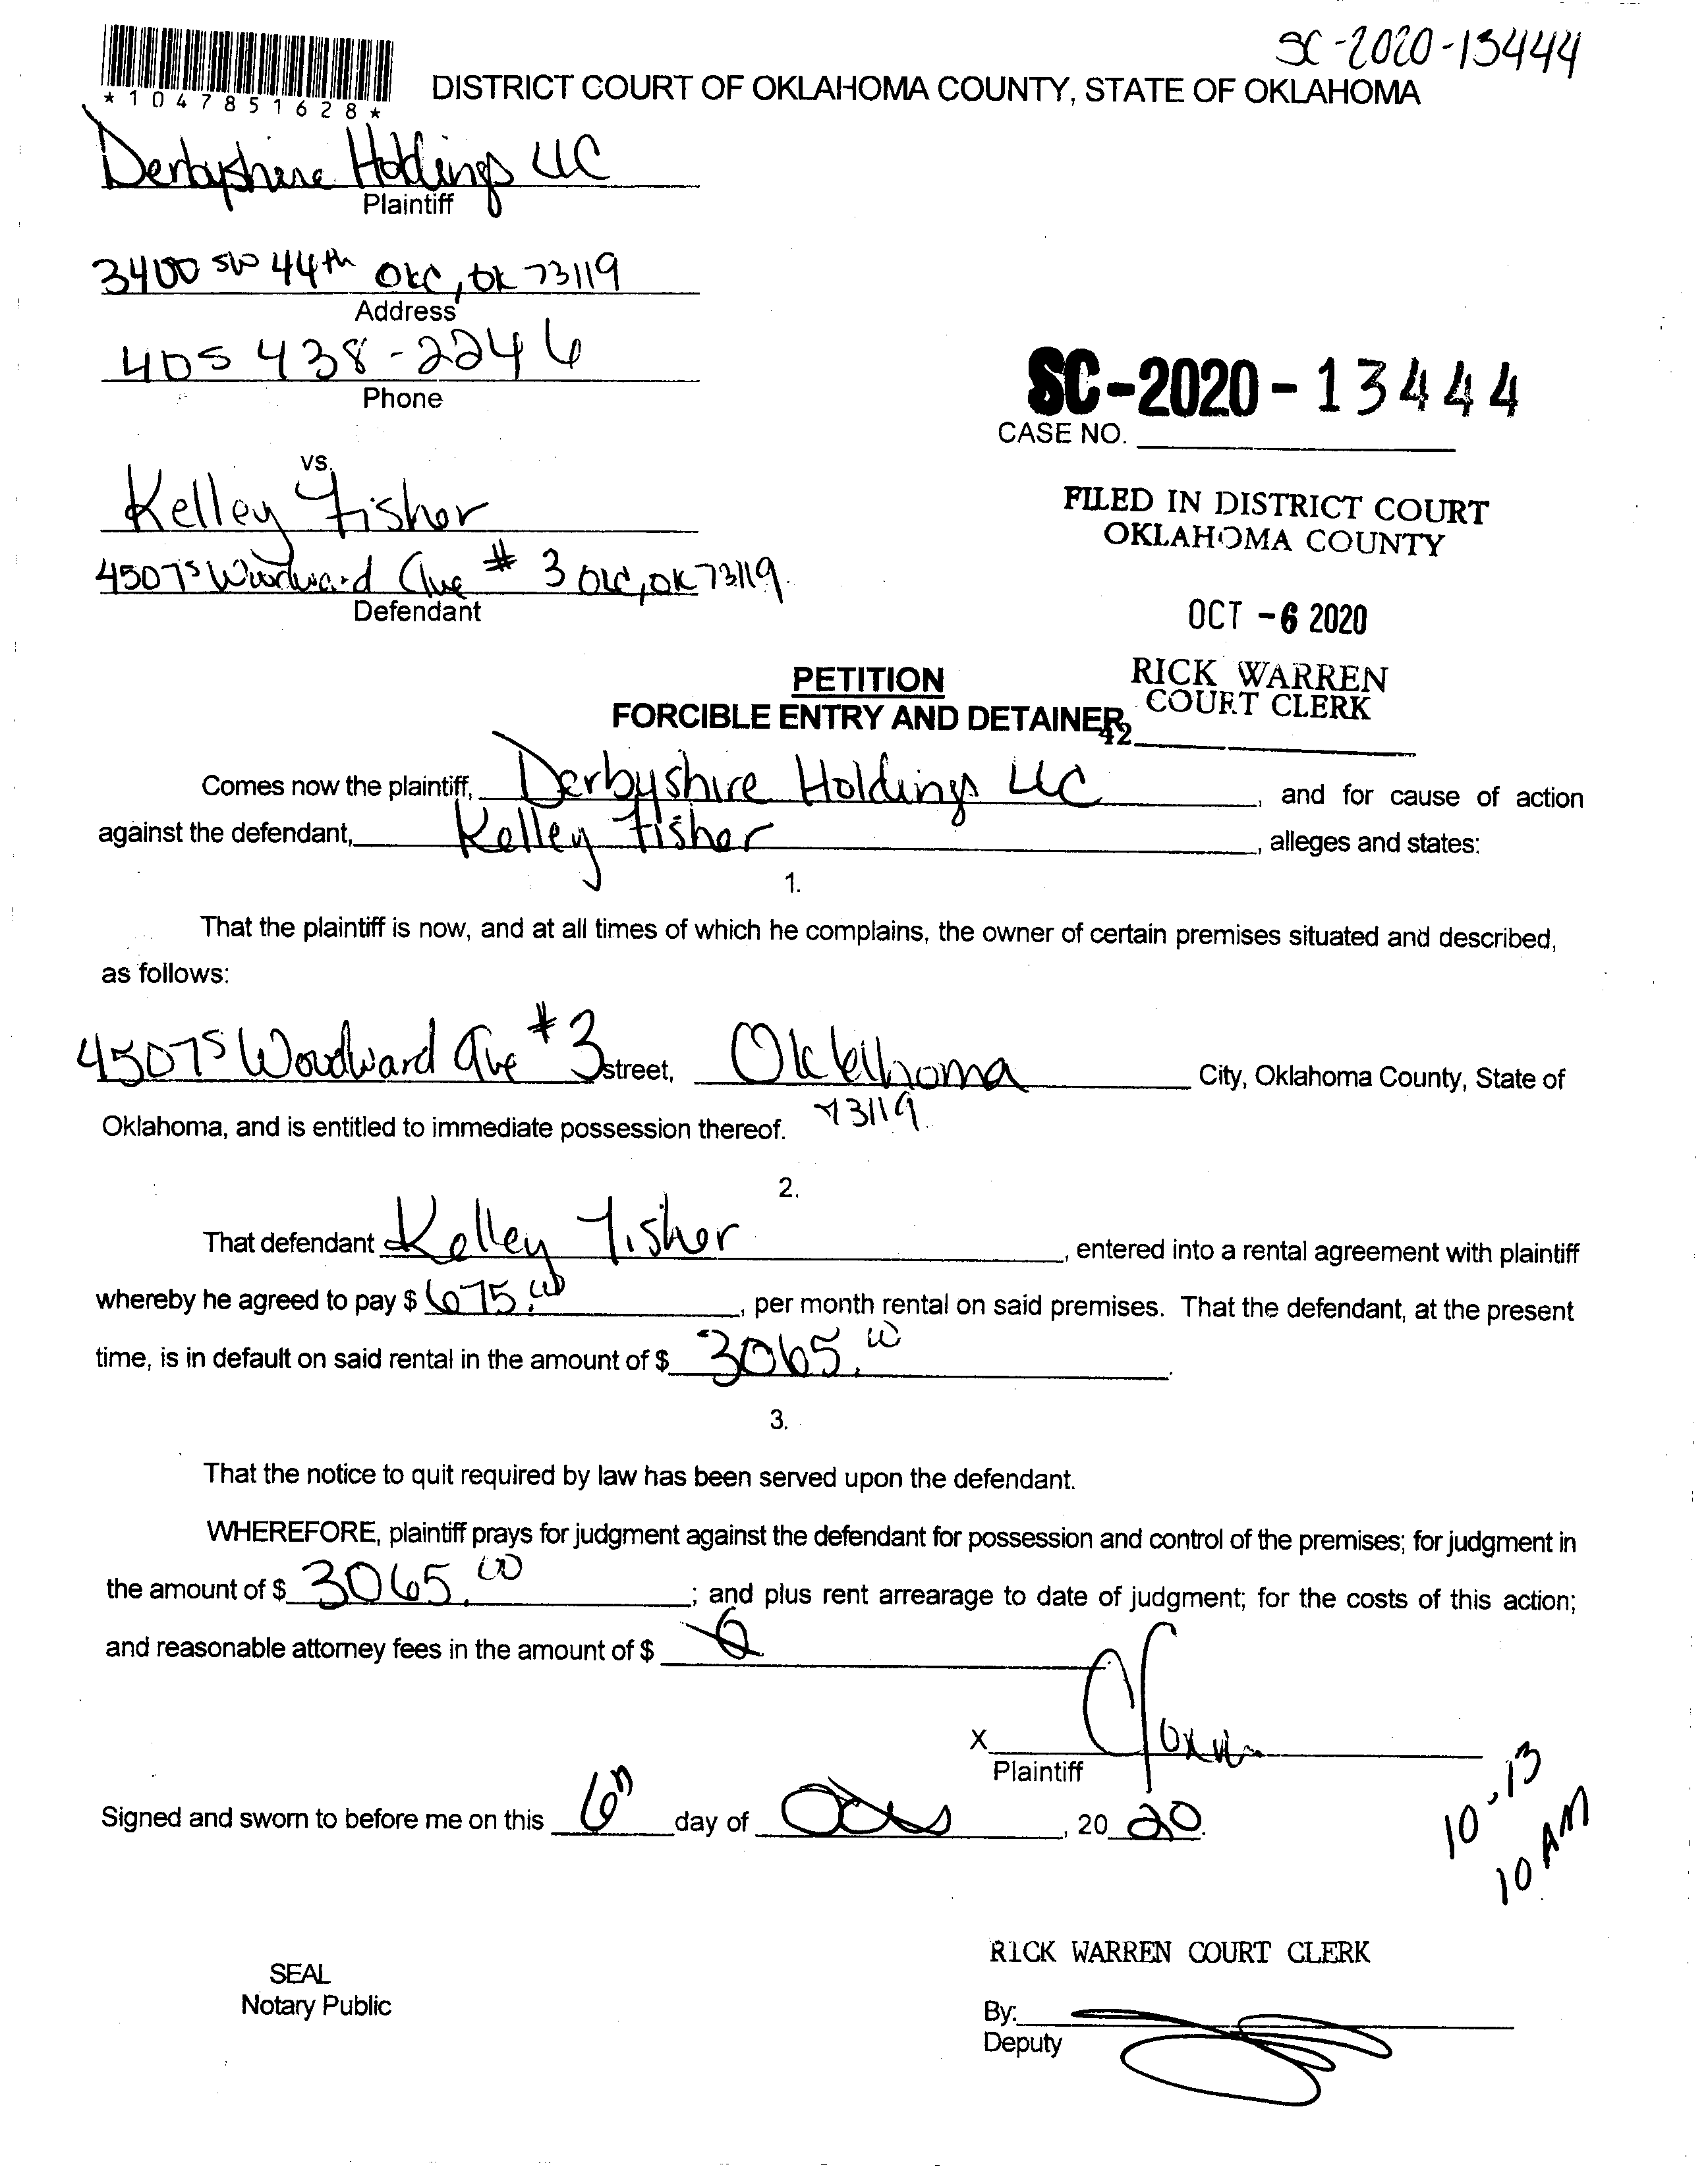 SC-2020-13444
*1047851628*
DISTRICT COURT OF OKLAHOMA COUNTY, STATE OF OKLAHOMA
Derbyshire Holdings LLC
Plaintiff
3400 SW 44th OKC, OK 73119
Address
405 438-2246
Phone
SC-2020-13444
CASE NO.
vs.
Kelley Fisher
FILED IN DISTRICT COURT
OKLAHOMA COUNTY
4507 S Woodward Ave # 3 OKC, OK 73119.
Defendant
OCT -6 2020
PETITION
RICK WARREN
COURT CLERK
FORCIBLE ENTRY AND DETAINER
42
Comes now the plaintiff, Derbyshire Holdings LLC, and for cause of action
against the defendant, Kelley Fisher, alleges and states:
1.
That the plaintiff is now, and at all times of which he complains, the owner of certain premises situated and described,
as follows:
4507 S Woodward Ave #3 street, Oklahoma City, Oklahoma County, State of
73119
Oklahoma, and is entitled to immediate possession thereof.
2.
That defendant Kelley Fisher, entered into a rental agreement with plaintiff
whereby he agreed to pay $ 675.00, per month rental on said premises. That the defendant, at the present
time, is in default on said rental in the amount of $ 3065.00.
3.
That the notice to quit required by law has been served upon the defendant.
WHEREFORE, plaintiff prays for judgment against the defendant for possession and control of the premises; for judgment in
the amount of $ 3065.00; and plus rent arrearage to date of judgment; for the costs of this action;
and reasonable attorney fees in the amount of $
X
Plaintiff
Signed and sworn to before me on this 6th day of Oct, 2020.
10-13
10 AM
RICK WARREN COURT CLERK
SEAL
Notary Public
By:
Deputy